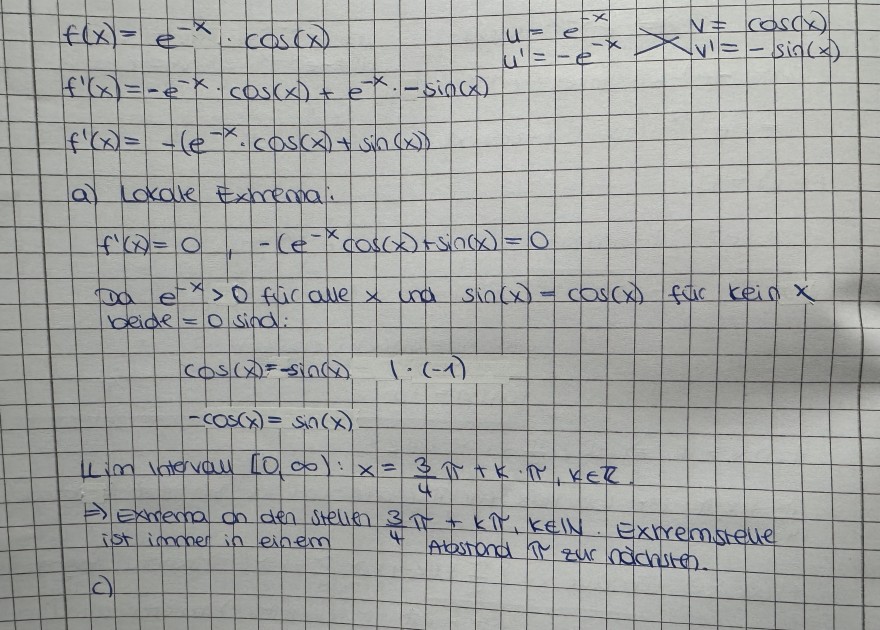 f(x) = e^-x · cos(x)
u = e^-x v = cos(x)
u' = -e^-x v' = - sin(x)
f'(x) = -e^-x · cos(x) + e^-x · -sin(x)
f'(x) = -(e^-x · cos(x) + sin(x))
a) Lokale Extrema:
f'(x) = 0 , -(e^-x cos(x) + sin(x) = 0
Da e^-x > 0 für alle x und sin(x) = cos(x) für kein x
beide = 0 sind:
cos(x) = -sin(x) | · (-1)
-cos(x) = sin(x)
↳ im Intervall [0, ∞) : x = 3/4 π + k · π, k∈ℤ
⇒ Extrema an den stellen 3/4 π + kπ, k∈ℕ. Extremstelle
ist immer in einem Abstand π zur nächsten.
c)